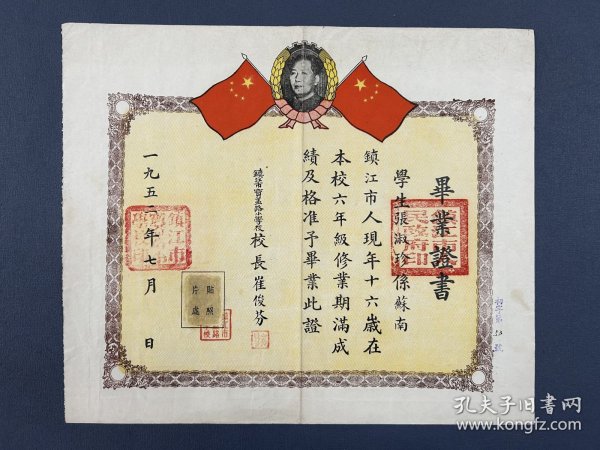 畢業證書
學生張淑珍係蘇南
鎮江市人現年十六歲在
本校六年級修業期滿成
績及格准予畢業此證
校長崔俊芬
貼照
片處
一九五二年七月 日
孔夫子旧书网
www.kongfz.com